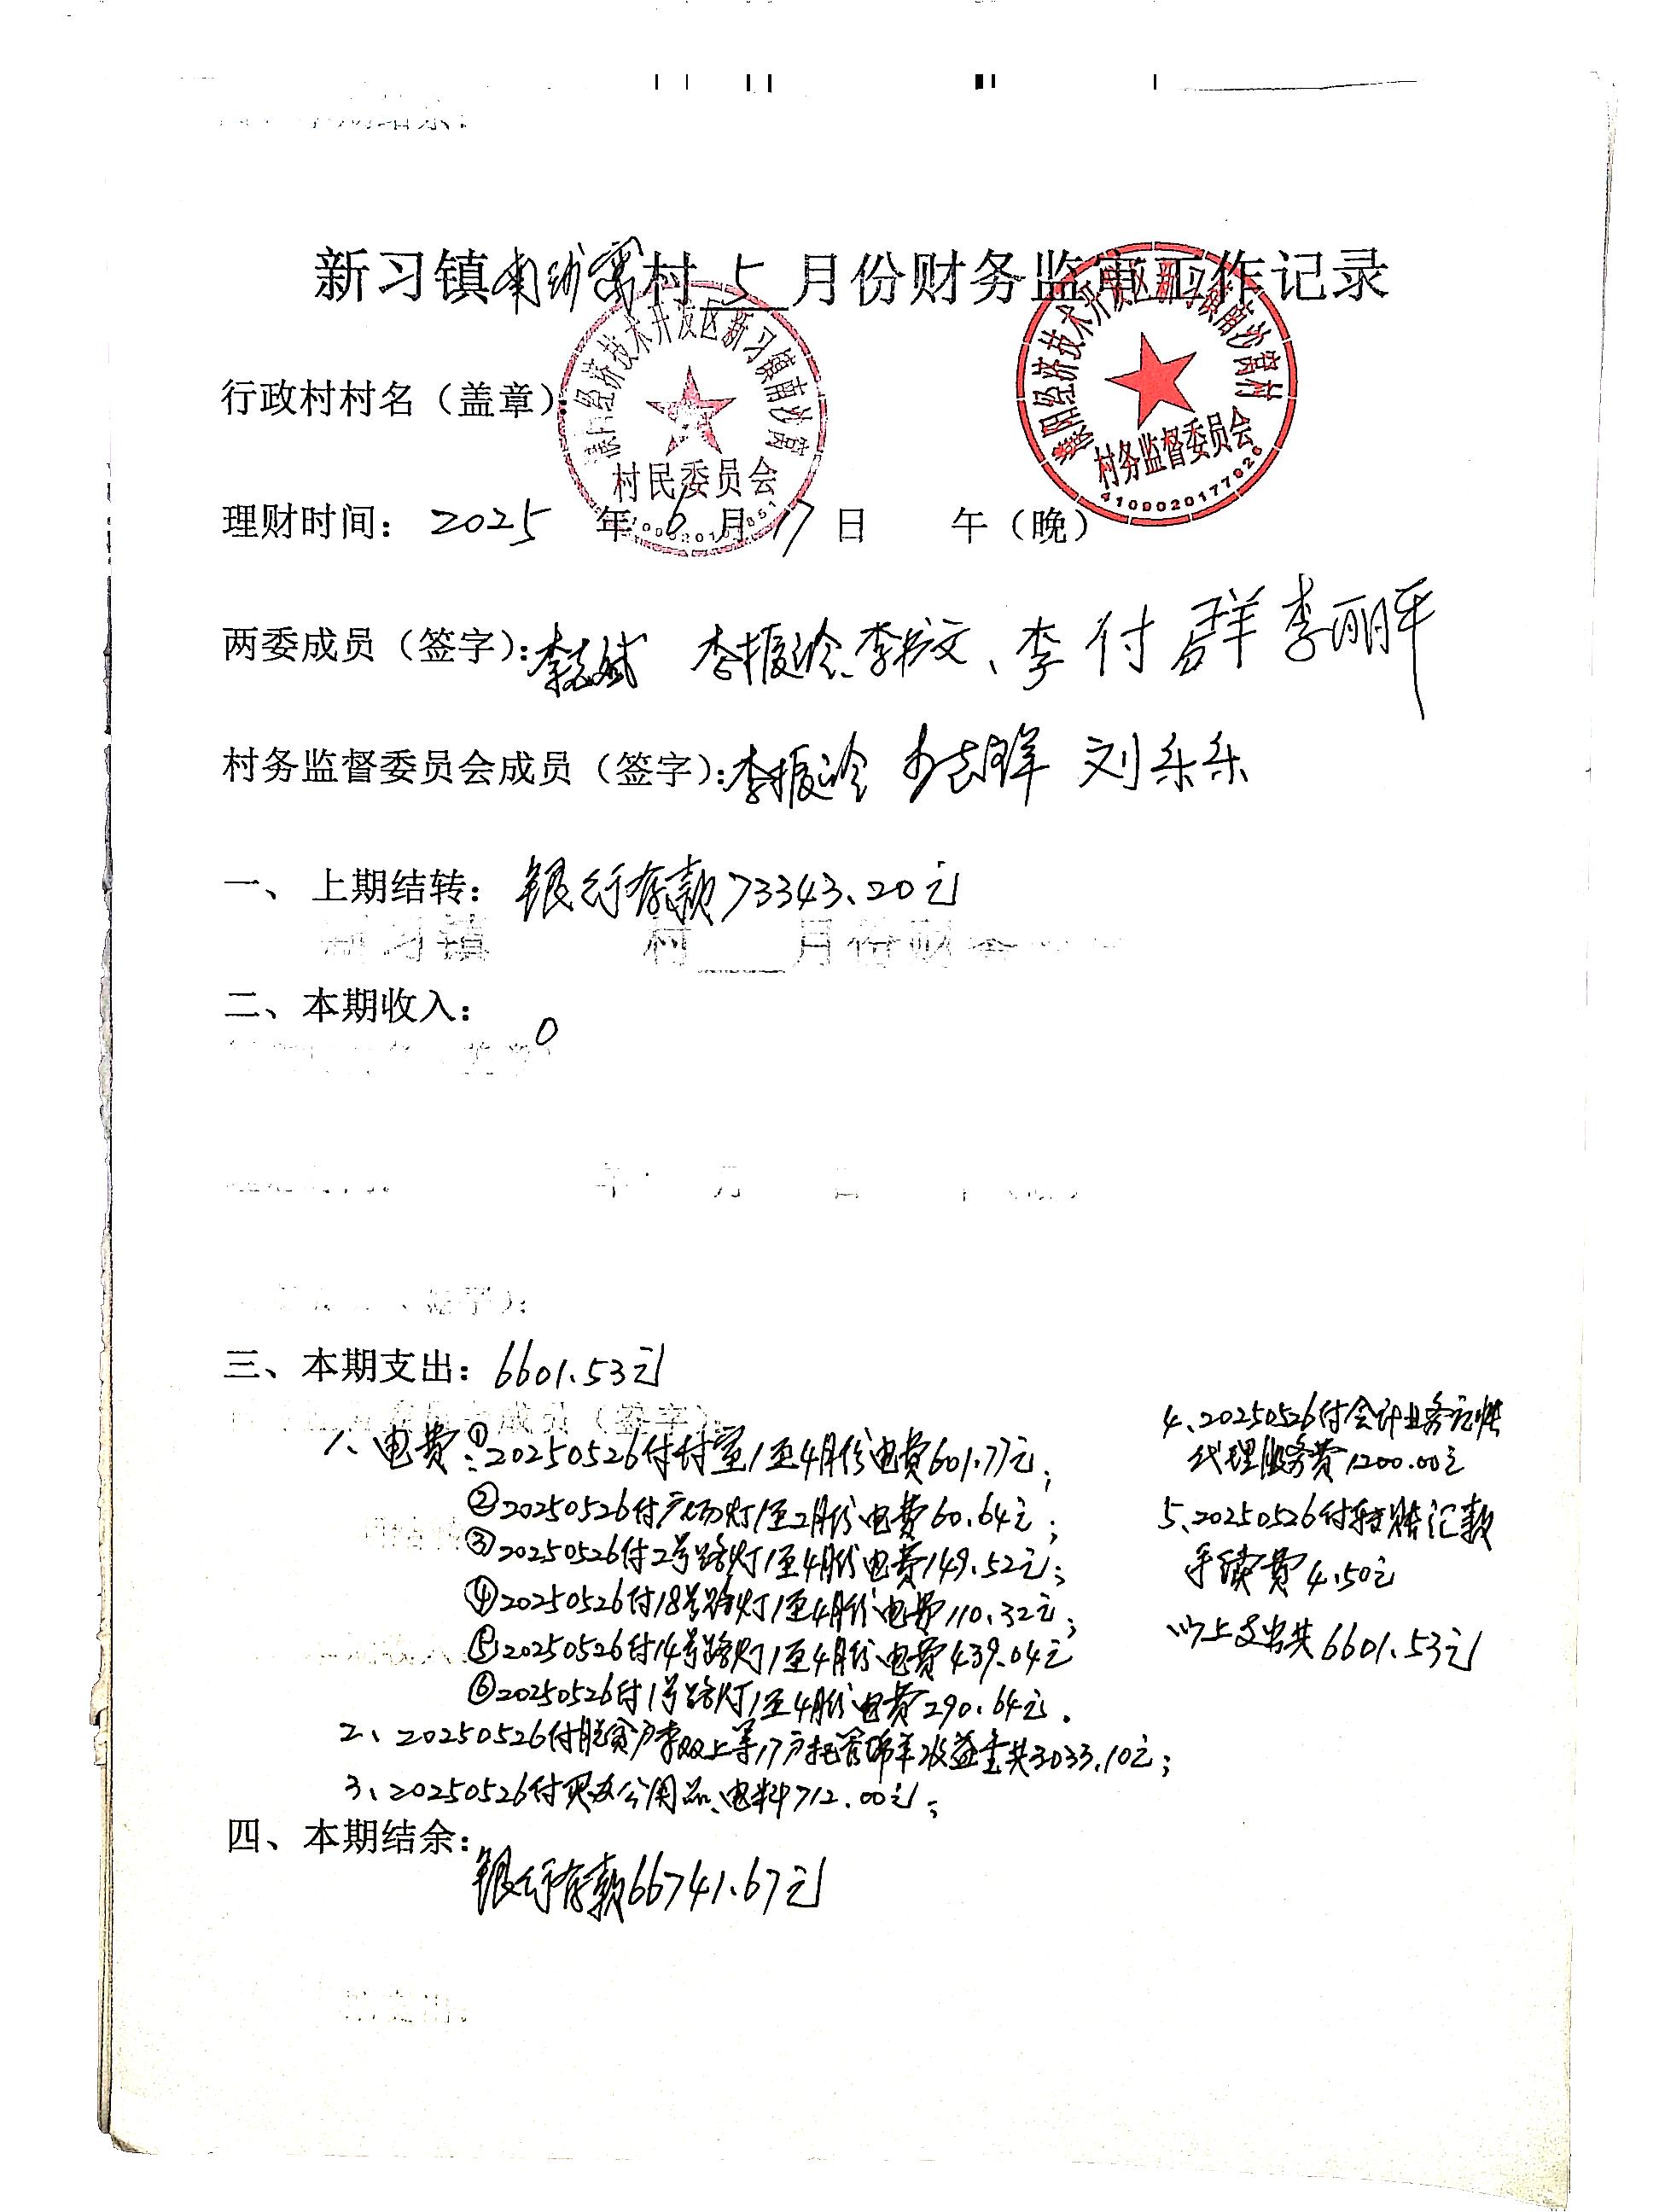 新习镇南沙窝村 5 月份财务监审工作记录
行政村村名（盖章）：
濮阳经济技术开发区新习镇南沙窝
村民委员会
濮阳经济技术开发区新习镇南沙窝村
村务监督委员会
4109020177026
理财时间： 2025 年 6 月 17 日 午（晚）
两委成员（签字）： 李振冷、李文、李付群 李丽平
村务监督委员会成员（签字）：李振冷 刘乐乐
一、 上期结转： 银行存款73343.20元
二、本期收入：
0
三、本期支出：6601.53元
1、电费：①20250526付村室1至4月份电费601.77元；
②20250526付广场灯1至2月份电费60.64元；
③20250526付2号路灯1至4月份电费149.52元；
④20250526付18号路灯1至4月份电费110.32元；
⑤20250526付14号路灯1至4月份电费439.04元
⑥20250526付1号路灯1至4月份电费290.64元.
2、20250526付脱贫户李双上等17户托管绵羊收益金共3033.10元；
3、20250526付买办公用品、电料712.00元；
4、20250526付会计业务记账
代理服务费1200.00元
5、20250526付转账汇款
手续费4.50元
以上支出共6601.53元
四、本期结余：
银行存款66741.67元